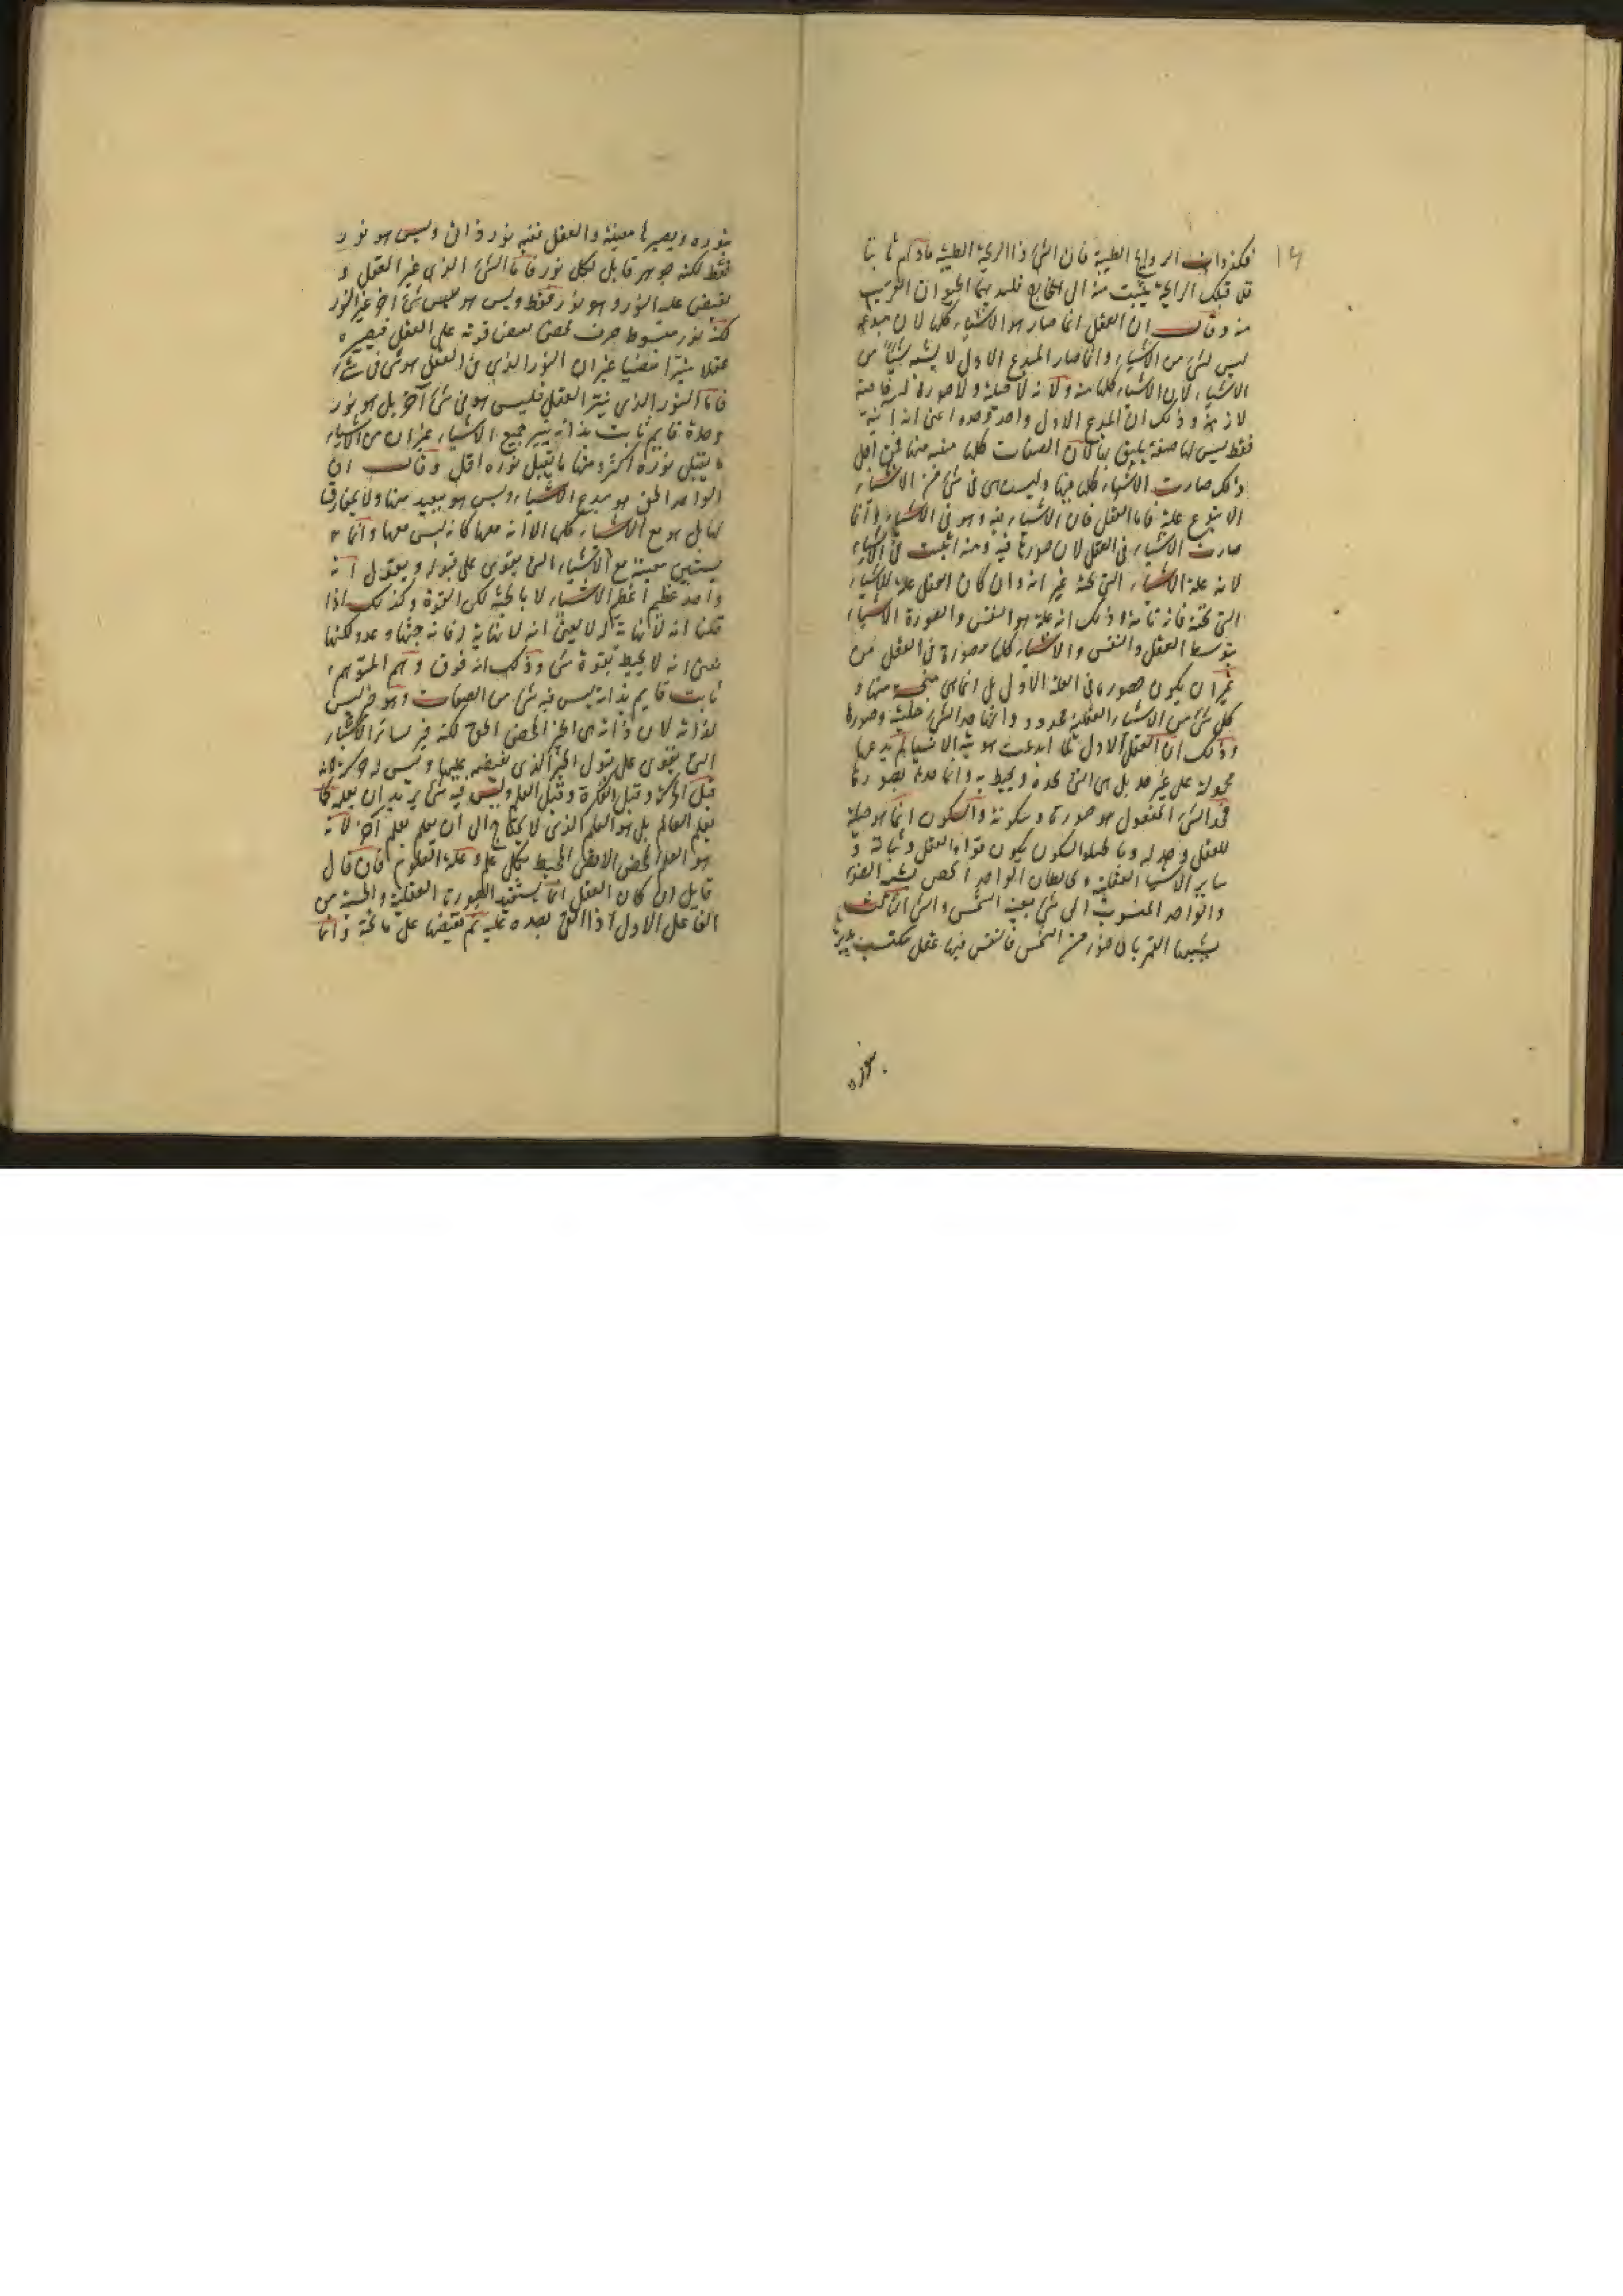 ١٤
فكذوات الروايح الطيبة فان الشئ ذا الريحة الطيبة مادام ثابتا
قل تلك الرايحة ينبث منه الى الخارج فليد بها الحيوان القريب
منه وقال ان العقل انما صار هو الاشياء كلها لان مبدعه
ليس لشئ من الاشياء وانما صار المبدع الاول لا يشبه شيئا من
الاشياء لان الاشياء كلها منه ولانه لا حلية ولا صورة له خاصة
لازمة وذلك ان المبدع الاول واحد وحده اعنى انه انية
فقط ليس لها صفة يليق بها لان الصفات كلها منبثة منها فمن اجل
ذلك صارت الاشياء كلها منها وليست هى فى شئ من الاشياء
الا بنوع علة فاما العقل فان الاشياء فيه وهو فى الاشياء وانما
صارت الاشياء فى العقل لان صورها فيه ومنه انبثت فى الاشياء
لانه علة الاشياء التى تحته غير انه وان كان العقل علة للاشياء
التى تحته فانه تامة وذلك انه علة هو النفس والصورة الاشياء
بتوسط العقل والنفس والاشياء كلها مصورة فى العقل من
غير ان يكون مصورة فى العلة الاولى بل انما هى منبجسة منها و
كل شئ من الاشياء العقلية محدود وانما حد الشئ حليته وصورته
وذلك ان العقل الاول لما ابدعت هوية الاشيا لم يدعها
مجهولة على غير حد بل هى التى تحده ويحيط به وانما حدها بصورتها
فحد الشئ المفعول هو صورته وسكونه والسكون انما هو حلية
للعقل وحد له وبالحلية والسكون يكون قوام العقل وثباته و
ساير الاشيا العقلية وقال ان الواحد المحض يشبه الضوء
والواحد المنسوب الى شئ يشبه الشمس والشئ الثالث
يشبهها القمر بان ضؤه من الشمس فالنفس فيها عقل مكتسب ينيرها
بنوره
بنوره ويصيرها مضيئة والعقل ففيه نور ذاتى وليس هو نور
فقط لكنه جوهر قابل لكل نور فاما الشئ الذى غير العقل و
يفيض عليه النور وهو نور فقط وليس هو بعض شئ اخر غير النور
لكنه نور مبسوط صرف محض يفيض قوته على العقل فيصيره
عقلا نيرا مضيئا غير ان النور الذى فى العقل هو شئ فى شئ
فاما النور الذى ينير العقل فليس هو فى شئ آخر بل هو نور
وحده قايم ثابت بذاته ينير جميع الاشياء غير ان من الاشياء
ما يقبل نوره اكثر ومنها ما يقبل نوره اقل وقال ان
الواحد الحق هو مبدع الاشياء وليس هو ببعيد منها ولا بمفارق
لها بل هو مع الاشياء كلها الا انه معها كانه ليس معها وانما
يستبين معيته مع الاشياء التى يقوى على قبوله ويقول انه
واحد عظيم اعظم الاشياء لا بالجثة لكن القوة وكذلك اذا
قلنا انه لا نهاية له لا يعنى انه لا نهاية له فانه جثة او عدد لكنها
نعنى انه لا يحيط بقوة شئ وذلك انه فوق وهم المتوهم
ثابت قايم بذاته ليس فيه شئ من الصفات وهو خير ليس
لذاته لان ذاته هى الخير المحض الحق لكنه خير لسائر الاشياء
التى يقوى على قبول الخير الذى يفيضه عليها وليس له حركة لانه
قبل الحركة وقبل الفكرة وقبل العلم وليس فيه شئ يريد ان يعلمه كما
يعلم العالم بل هو العلم الذى لا يحتاج الى ان يعلم بعلم آخر لانه
هو العلم المحض الاقصى المحيط بكل علم وعلة العلوم فان قال
قايل ان كان العقل انما يستفيد الصورة العقلية والحسية من
الفاعل الاول اذا القى بصره عليه ثم يفيضها على ما تحته وانما